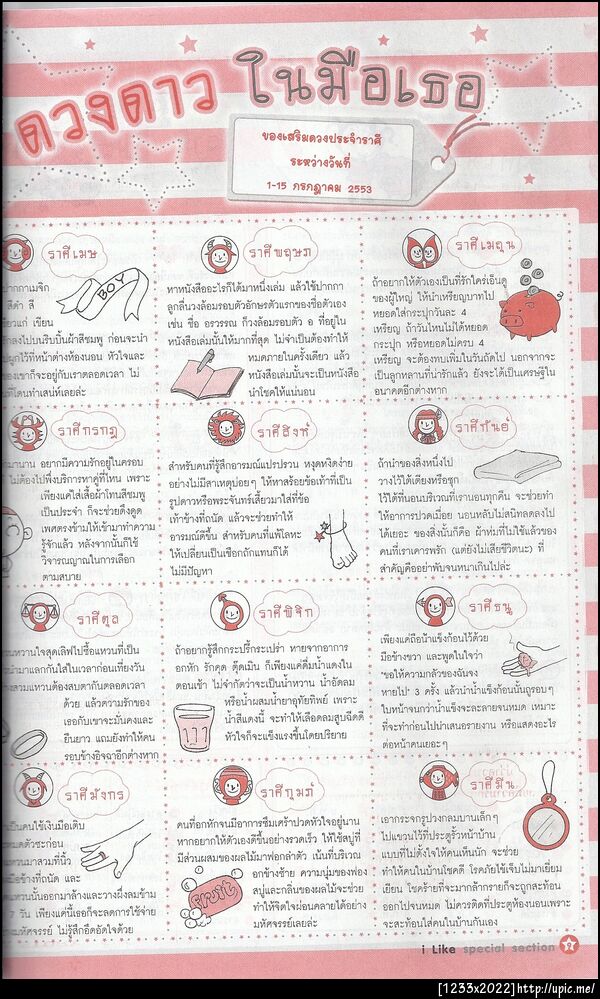 ดวงดาว ในมือเธอ
ของเสริมดวงประจำราศี
ระหว่างวันที่
1-15 กรกฎาคม 2553
ราศีเมษ
ปากกาเมจิก
สีดำ สี
เขียน
ลงไปบนริบบิ้นผ้าสีชมพู ก่อนจะนำ
ผูกไว้ที่หน้าต่างห้องนอน หัวใจและ
ของเขาก็จะอยู่กับเราตลอดเวลา ไม่
โดนทำเสน่ห์เลยล่ะ
BOY
ราศีพฤษภ
หาหนังสืออะไรก็ได้มาหนึ่งเล่ม แล้วใช้ปากกา
ลูกลื่นวงล้อมรอบตัวอักษรตัวแรกของชื่อตัวเอง
เช่น ชื่อ อรวรรณ ก็วงล้อมรอบตัว อ ที่อยู่ใน
หนังสือเล่มนั้นให้มากที่สุด ไม่จำเป็นต้องทำให้
หมดภายในครั้งเดียว แล้ว
หนังสือเล่มนั้นจะเป็นหนังสือ
นำโชคให้แน่นอน
ราศีเมถุน
ถ้าอยากให้ตัวเองเป็นที่รักใคร่เอ็นดู
ของผู้ใหญ่ ให้นำเหรียญบาทไป
หยอดใส่กระปุกวันละ 4
เหรียญ ถ้าวันไหนไม่ได้หยอด
กระปุก หรือหยอดไม่ครบ 4
เหรียญ จะต้องทบเพิ่มในวันถัดไป นอกจากจะ
เป็นลูกหลานที่น่ารักแล้ว ยังจะได้เป็นเศรษฐีใน
อนาคตอีกต่างหาก
ราศีกรกฎ
มานาน อยากมีความรักอยู่ในครอบ
ไม่ต้องไปพึ่งบริการหาคู่ที่ไหน เพราะ
เพียงแค่ใส่เสื้อผ้าโทนสีชมพู
เป็นประจำ ก็จะช่วยดึงดูด
เพศตรงข้ามให้เข้ามาทำความ
รู้จักแล้ว หลังจากนั้นก็ใช้
วิจารณญาณในการเลือก
ตามสบาย
ราศีสิงห์
สำหรับคนที่รู้สึกอารมณ์แปรปรวน หงุดหงิดง่าย
อย่างไม่มีสาเหตุบ่อยๆ ให้หาสร้อยข้อเท้าที่เป็น
รูปดาวหรือพระจันทร์เสี้ยวมาใส่ที่ข้อ
เท้าข้างที่ถนัด แล้วจะช่วยทำให้
อารมณ์ดีขึ้น สำหรับคนที่แพ้โลหะ
ให้เปลี่ยนเป็นเชือกถักแทนก็ได้
ไม่มีปัญหา
ราศีกันย์
ถ้านำของสิ่งหนึ่งไป
วางไว้ใต้เตียงหรือซุก
ไว้ใต้ที่นอนบริเวณที่เรานอนทุกคืน จะช่วยทำ
ให้อาการปวดเมื่อย นอนหลับไม่สนิทลดลงไป
ได้เยอะ ของสิ่งนั้นก็คือ ผ้าห่มที่ไม่ใช้แล้วของ
คนที่เราเคารพรัก (แต่ยังไม่เสียชีวิตนะ) ที่
สำคัญคืออย่าพับจนหนาเกินไปล่ะ
ราศีตุล
หวานใจสุดเลิฟไปซื้อแหวนที่เป็น
นำมาแลกกันใส่ในเวลาก่อนเที่ยงวัน
สวมแหวนต้องสบตากันตลอดเวลา
ด้วย แล้วความรักของ
เธอกับเขาจะมั่นคงและ
ยืนยาว แถมยังทำให้คน
รอบข้างอิจฉาอีกต่างหาก
ราศีพิจิก
ถ้าอยากรู้สึกกระปรี้กระเปร่า หายจากอาการ
อกหัก รักคุด ตุ๊ดเมิน ก็เพียงแค่ดื่มน้ำแดงใน
ตอนเช้า ไม่จำกัดว่าจะเป็นน้ำหวาน น้ำอัดลม
หรือน้ำผสมน้ำยาอุทัยทิพย์ เพราะ
น้ำสีแดงนี้ จะทำให้เลือดลมสูบฉีดดี
หัวใจก็จะแข็งแรงขึ้นโดยปริยาย
ราศีธนู
เพียงแค่ถือน้ำแข็งก้อนไว้ด้วย
มือข้างขวา และพูดในใจว่า
ขอให้ความกลัวของฉันจง
หายไป 3 ครั้ง แล้วนำน้ำแข็งก้อนนั้นถูรอบๆ
ใบหน้าจนกว่าน้ำแข็งจะละลายจนหมด เหมาะ
ที่จะทำก่อนไปนำเสนอรายงาน หรือแสดงอะไร
ต่อหน้าคนเยอะๆ
ราศีมังกร
เป็นคนใช้เงินมือเติบ
หมดตัวซะก่อน
แหวนมาสวมที่นิ้ว
มือข้างที่ถนัด และ
แหวนนั้นออกมาล้างและวางผึ่งลมข้าม
7 วัน เพียงแค่นี้เธอก็จะลดการใช้จ่าย
มหัศจรรย์ ไม่รู้สึกอึดอัดใจด้วย
ราศีกุมภ์
คนที่อกหักจนมีอาการซึมเศร้าปวดหัวใจอยู่นาน
หากอยากให้ตัวเองดีขึ้นอย่างรวดเร็ว ให้ใช้สบู่ที่
มีส่วนผสมของผลไม้มาฟอกลำตัว เน้นที่บริเวณ
อกข้างซ้าย ความนุ่มของฟอง
สบู่และกลิ่นของผลไม้จะช่วย
ทำให้จิตใจผ่อนคลายได้อย่าง
มหัศจรรย์เลยล่ะ
fruity
ราศีมีน
เอากระจกรูปวงกลมบานเล็กๆ
ไปแขวนไว้ที่ประตูรั้วหน้าบ้าน
แบบที่ไม่ตั้งใจให้คนเห็นนัก จะช่วย
ทำให้คนในบ้านโชคดี โรคภัยไข้เจ็บไม่มาเยี่ยม
เยียน โชคร้ายที่จะมากล้ำกรายก็จะถูกสะท้อน
ออกไปจนหมด ไม่ควรติดที่ประตูห้องนอนเพราะ
จะสะท้อนใส่คนในบ้านกันเอง
i Like special section
[1233x2022]http://upic.me/